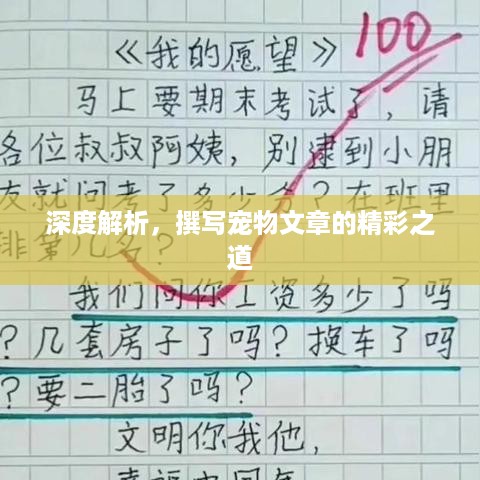 《我的愿望》
100
马上要期末考试了，请
各位叔叔阿姨，别逮到小朋
友就问考了多少分？在班里
排第几名？
深度解析，撰写宠物文章的精彩之
道
我们问你工资多少了吗
？几套房子了吗？换车了吗
？要二胎了吗？
文明你我他，